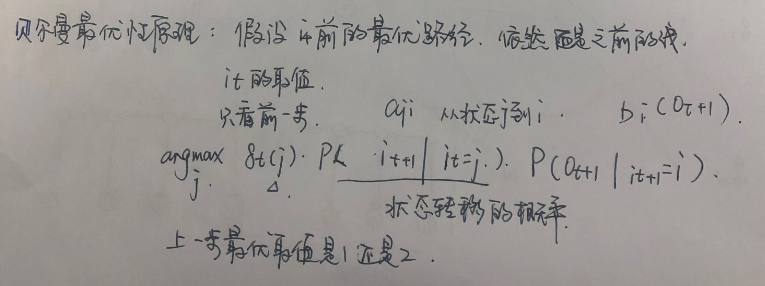 贝尔曼最优性原理：假设 it前的最优路径.依然是之前的线.
it的取值.
只看前一步. aji 从状态j到i. bi(Ot+1).
argmax j. δt(j). P( it+1 | it=j.). P(Ot+1 | it+1=i).
状态转移的概率.
上一步最优取值是1还是2.